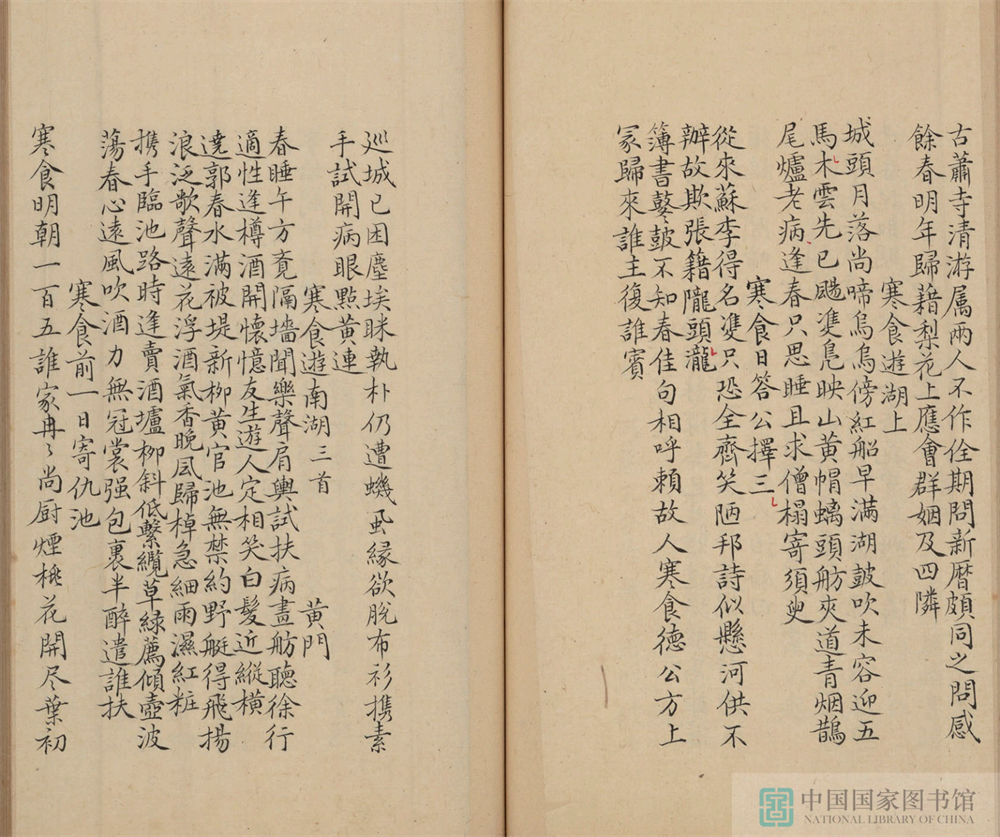 古蕭寺清游属兩人不作佺期問新曆頗同之問感
餘春明年歸藉梨花上應會群姻及四隣
寒食遊湖上
城頭月落尚啼烏烏傍紅船早滿湖皷吹未容迎五
馬木雲先已颺㕠凫映山黄帽螭頭舫夾道青烟鵲
尾爐老病逢春只思睡且求僧榻寄須臾
寒食日答公擇三
從來蘇李得名㕠只恐全齊笑陋邦詩似懸河供不
辦故欺張籍隴頭瀧
簿書鼕皷不知春佳句相呼賴故人寒食德公方上
冢歸來誰主復誰賓
巡城已困塵埃眯執朴仍遭蟣虱緣欲脫布衫携素
手試開病眼點黄連
寒食遊南湖三首
黄門
春睡午方覔隔墻聞樂聲肩輿試扶病畫舫聽徐行
適性逢樽酒開懷憶友生遊人定相笑白髮近縱横
遶郭春水滿被堤新柳黄官池無禁約野艇得飛揚
浪泛歌聲遠花浮酒氣香晚風歸棹急細雨濕紅粧
携手臨池路時逢賣酒壚柳斜低繫纜草緑薦傾壺波
蕩春心遠風吹酒力無冠裳强包裹半醉遣誰扶
寒食前一日寄仇池
寒食明朝一百五誰家冉〻尚厨煙桃花開尽葉初
中国国家图书馆
NATIONAL LIBRARY OF CHINA